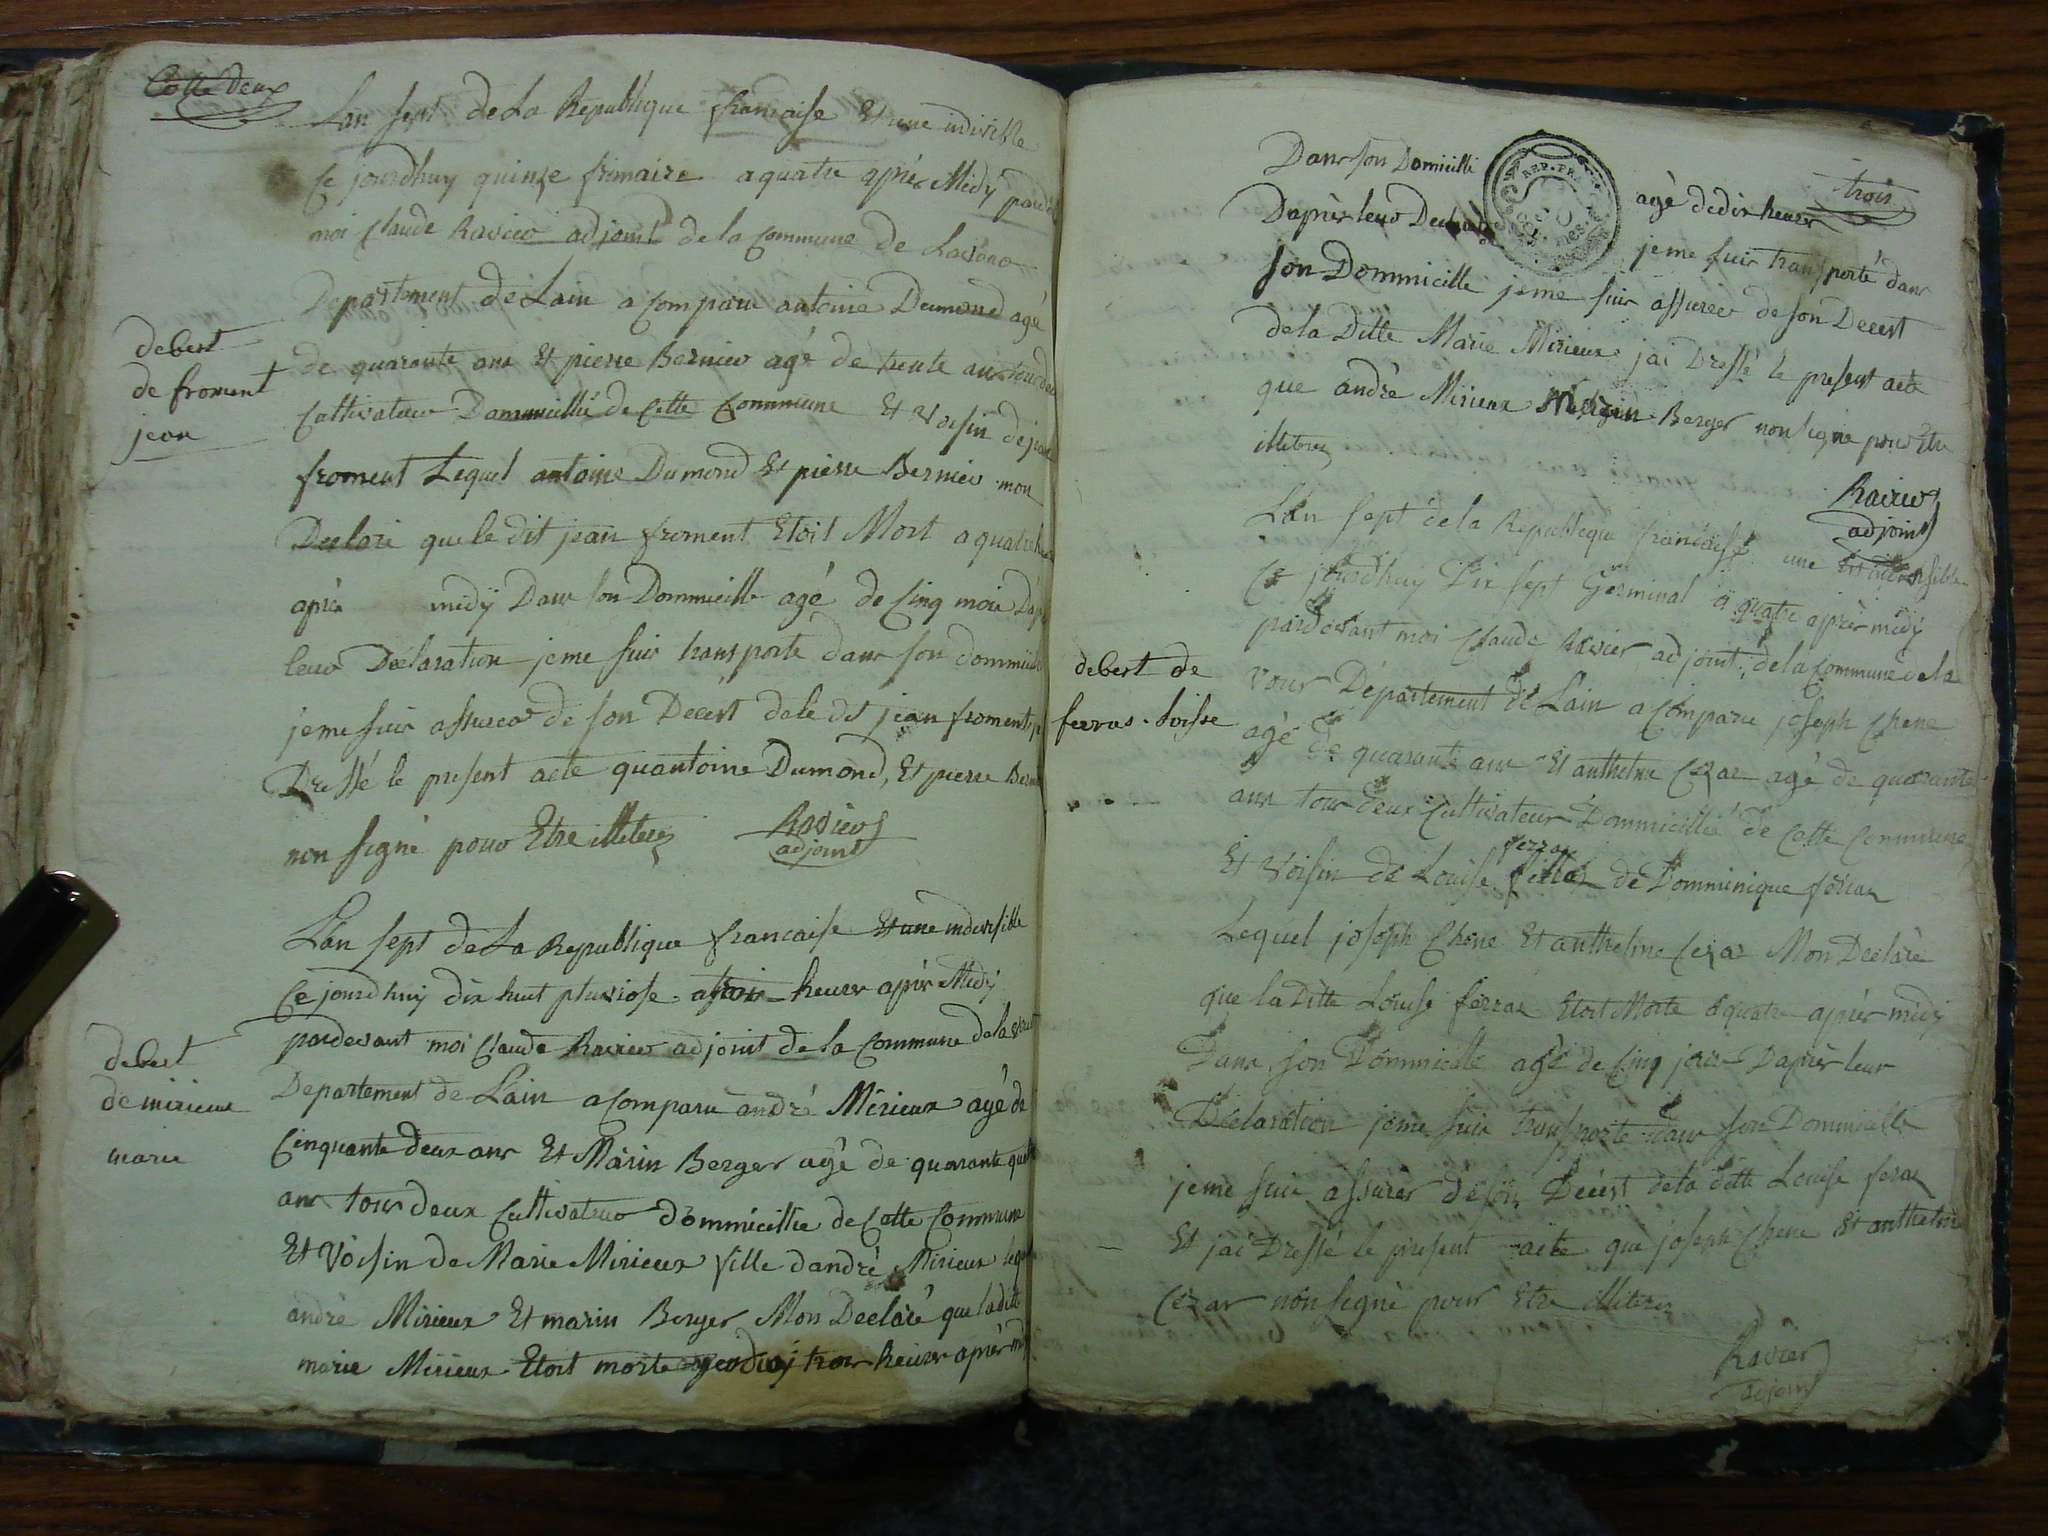 Cotte deux
Lan sept de La Republique francaise Et une indivisible
Ce jourdhuy quinze frimaire a quatre aprèr Midÿ
moi Claude Ravier adjoint de la Commune de Lavour
Departement de Lain a Comparu antoine Dumond agé
de quarante anr Et pierre Bernier agé de trente anr tour deux
debest
de froment
jean
Cultivateur Dommicillié de Cette Commune Et Voisin de jean
froment Lequel antoine Dumond Et pierre Bernier mon
Declaré que le dit jean froment Etoit Mort a quatre
aprèr midÿ Danr son Dommicille agé de Cinq moir
leur Déclaration jeme suir transporté danr son dommicile
jeme suir assurer de son Décést de le dit jean froment
Dressé le present acte quantoine Dumond, Et pierre
non signé pour Etre illiterez Ravier
adjoint
L'an sept de La Republique francaise Et une indivisible
Ce jourdhuÿ dix huit pluviose a troir heurer aprèr Midÿ
pardevant moi Claude Ravier adjoint de la Commune
debest
de mirieux
marie
Departement de Lain a Comparu andré Mirieux agé de
Cinquante deux anr Et Marin Berger agé de quarante quatre
anr tour deux Cultivateur dommicillié de Cette Commune
Et Voisin de Marie Mirieux fille dandré Mirieux
andré Mirieux Et marin Berger Mon Declaré que ladite
marie Mirieux Etoit morte troir heurer aprèr
trois
Danr son Domicilli agé de dix heurer
Daprèr leur jeme suir transporté danr
son Dommicille jeme suir assurer de son Décést
de la Ditte Marie Mirieux jai Dressé le present acte
que andré Mirieux Marin Berger non signé pour Etre
illiterez
Ravier
adjoint
L'an sept de la Republique francaise une Et indivisible
Ce jourdhuy Dix sept Germinal a quatre aprèr midÿ
pardevant moi Claude Ravier adjoint, de la Commune de la
debest de
ferras Loisse
Vour Département de Lain a Comparu joseph Chene
agé de quarante anr Et anthelme Cezar agé de quarante
anr tour deux Cultivateur Dommicillié de Cette Commune
ferrar
Et Voisin de Louise fille de Domminique ferrar
Lequel joseph Chene Et anthelme Cezar Mon Declaré
que la Ditte Louise ferrar Etoit Morte a quatre aprèr midÿ
Danr son Dommicille agé de Cinq jour Daprèr leur
Déclaration jeme suir transporté danr son Dommicille
jeme suir assurer de son Décést de la ditte Louise ferar
Et jai Dressé le present acte que joseph Chene Et anthelme
Cezar non signé pour Etre illiterez
Ravier
adjoint